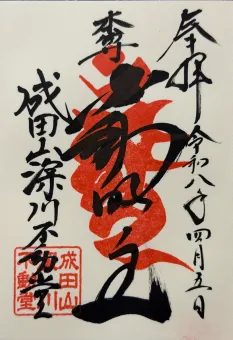 奉拝 令和八年四月五日
本尊
不動明王
成田山深川不動堂
成田山
不動堂